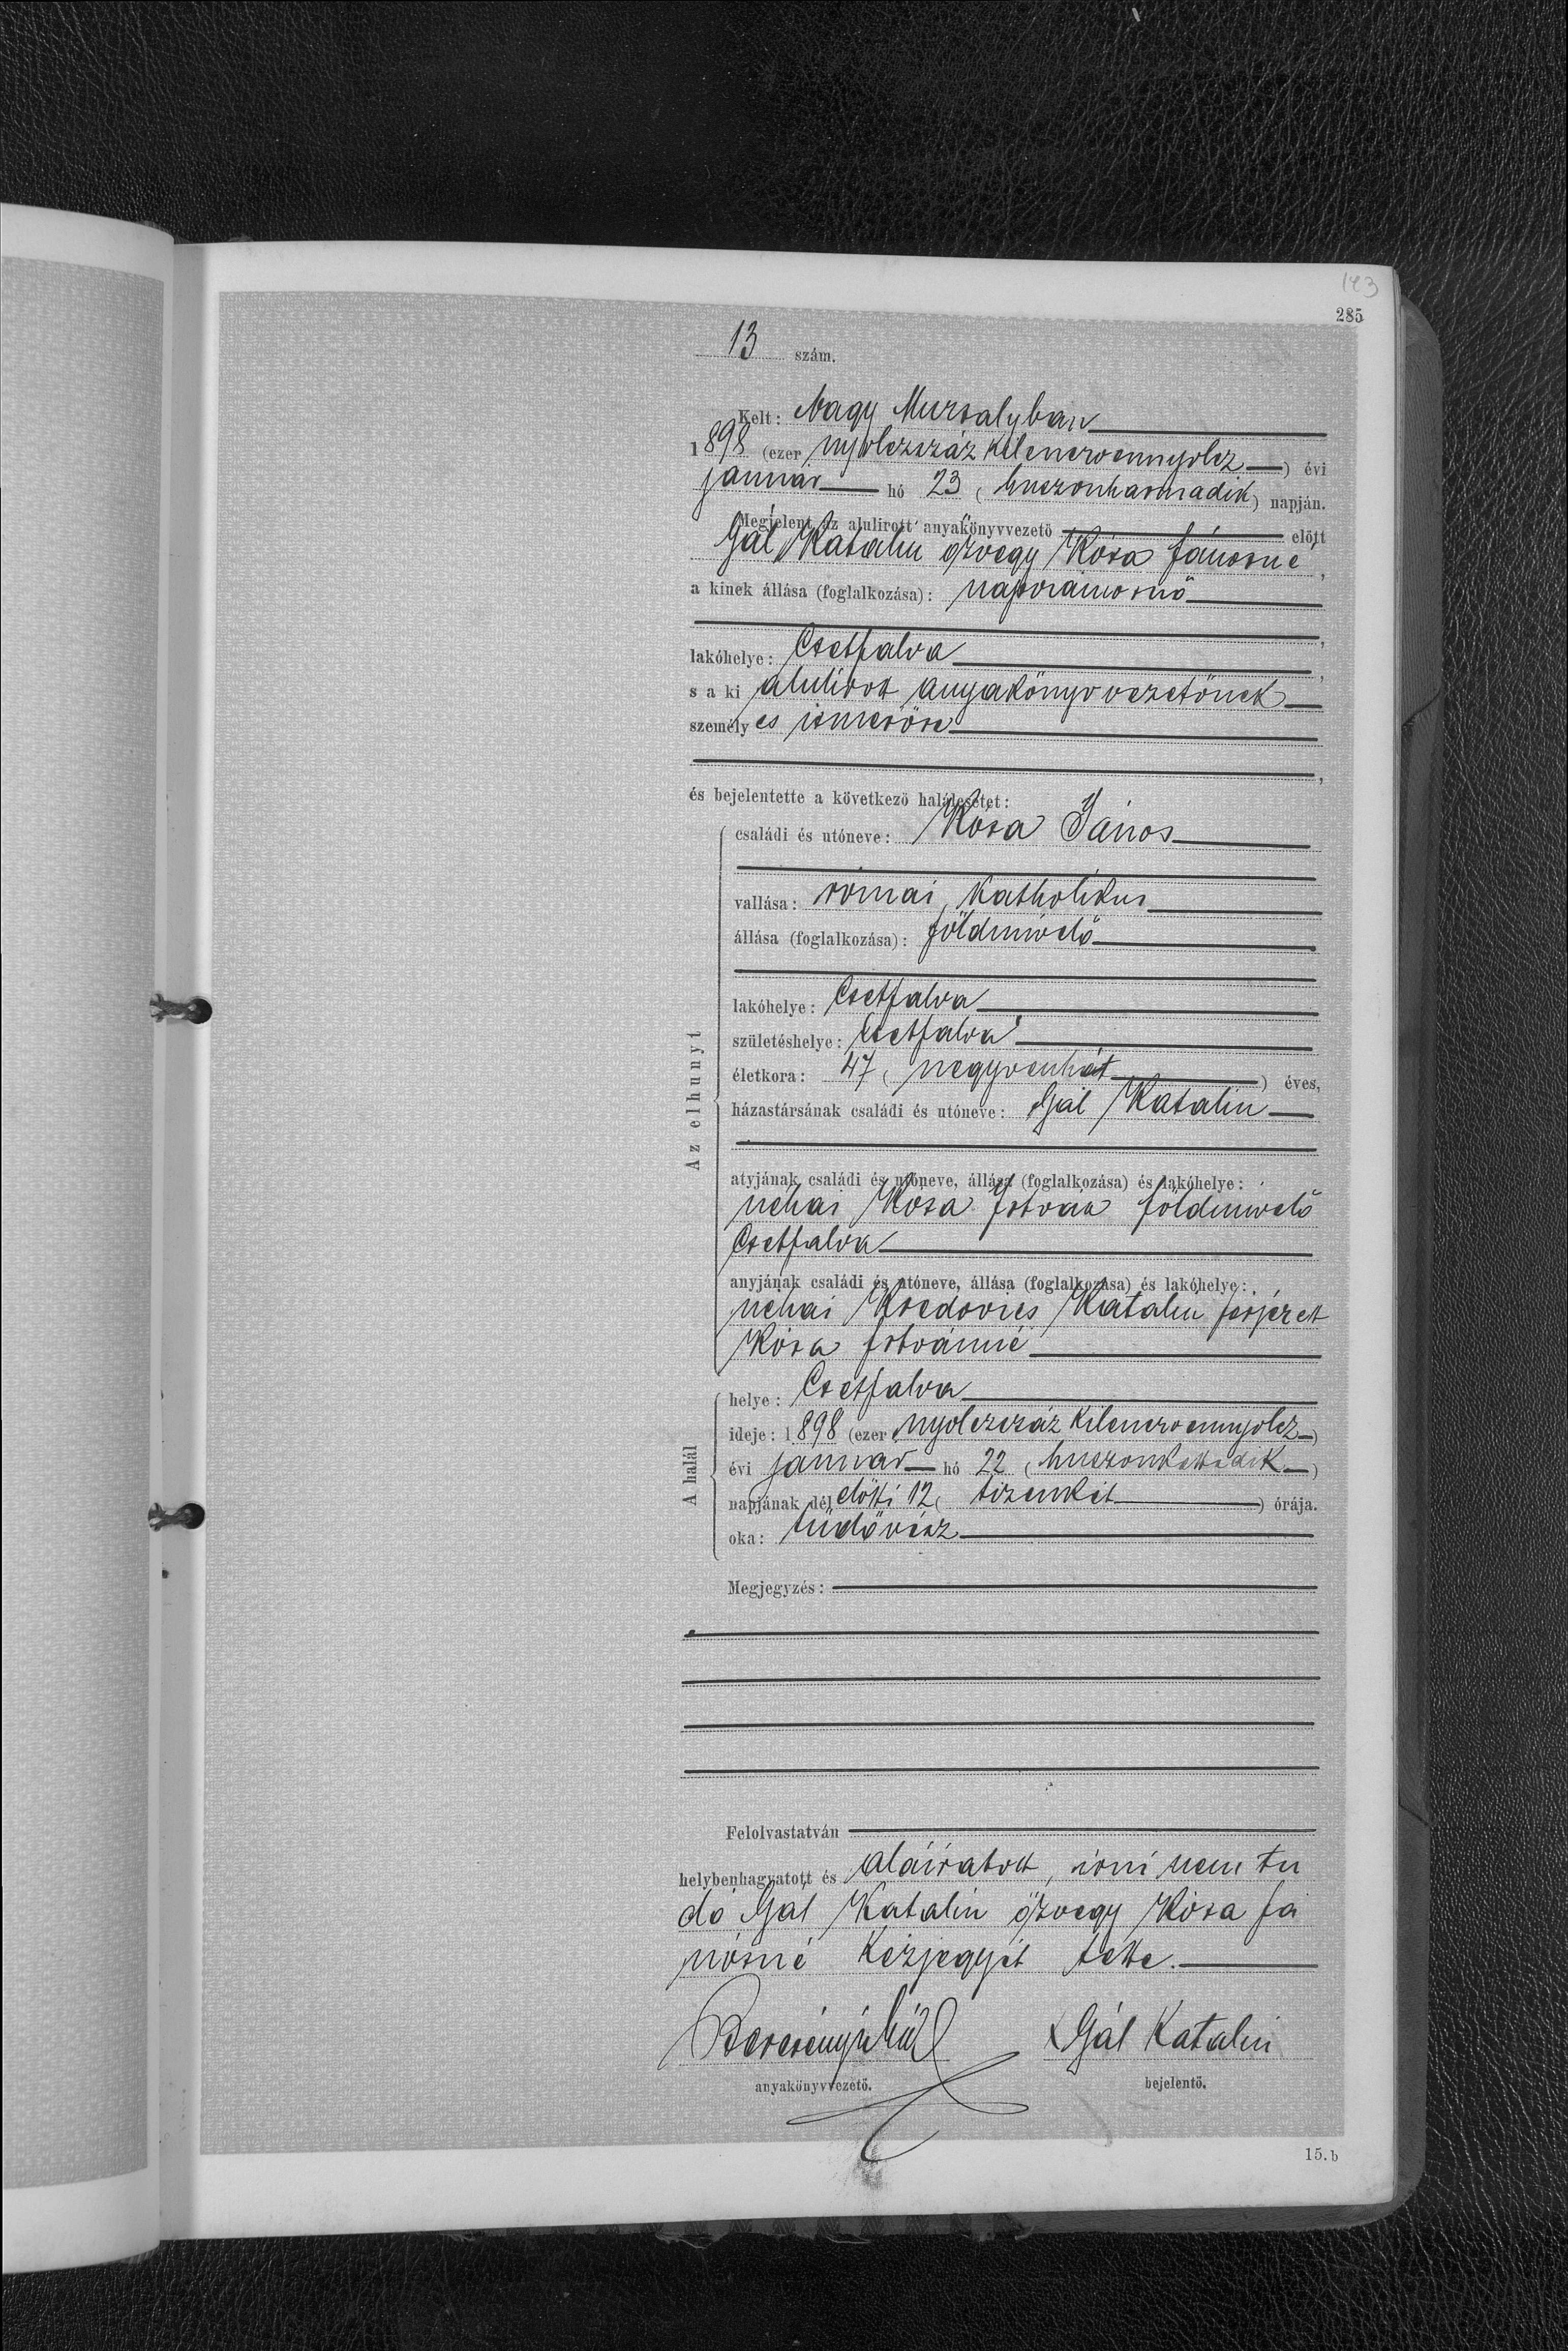 143
285
13 szám.
Kelt: Nagy Muzsalyban
1898 (ezer nyolczszáz kilenczvennyolcz) évi
január hó 23 (huszonharmadik) napján.
Megjelent az alulirott anyakönyvvezető előtt
Gál Katalin özvegy Kósa Jánosné,
a kinek állása (foglalkozása): napszámosnő
lakóhelye: Csetfalva,
s a ki alulirott anyakönyvvezetőnek
személyes ismerőse,
és bejelentette a következő halálesetet:
Az elhunyt
családi és utóneve: Kósa János
vallása: római katholikus
állása (foglalkozása): földmívelő
lakóhelye: Csetfalva
születéshelye: Csetfalva
életkora: 47 (negyvenhét) éves,
házastársának családi és utóneve: Gál Katalin
atyjának családi és utóneve, állása (foglalkozása) és lakóhelye:
néhai Kósa István földmívelő
Csetfalva
anyjának családi és utóneve, állása (foglalkozása) és lakóhelye:
néhai Katalin férjezet
Kósa Istvánné
A halál
helye: Csetfalva
ideje: 1898 (ezer nyolczszáz kilenczvennyolcz)
évi január hó 22 (huszonkettedik)
napjának délelőtti 12 (tizenkét) órája.
oka: tüdővész
Megjegyzés:
Felolvastatván
helybenhagyatott és aláíratott, írni nem tu
dó Gál Katalin özvegy Kósa Já
nosné kézjegyét tette.
x Gál Katalin
anyakönyvvezető. bejelentő.
15. b